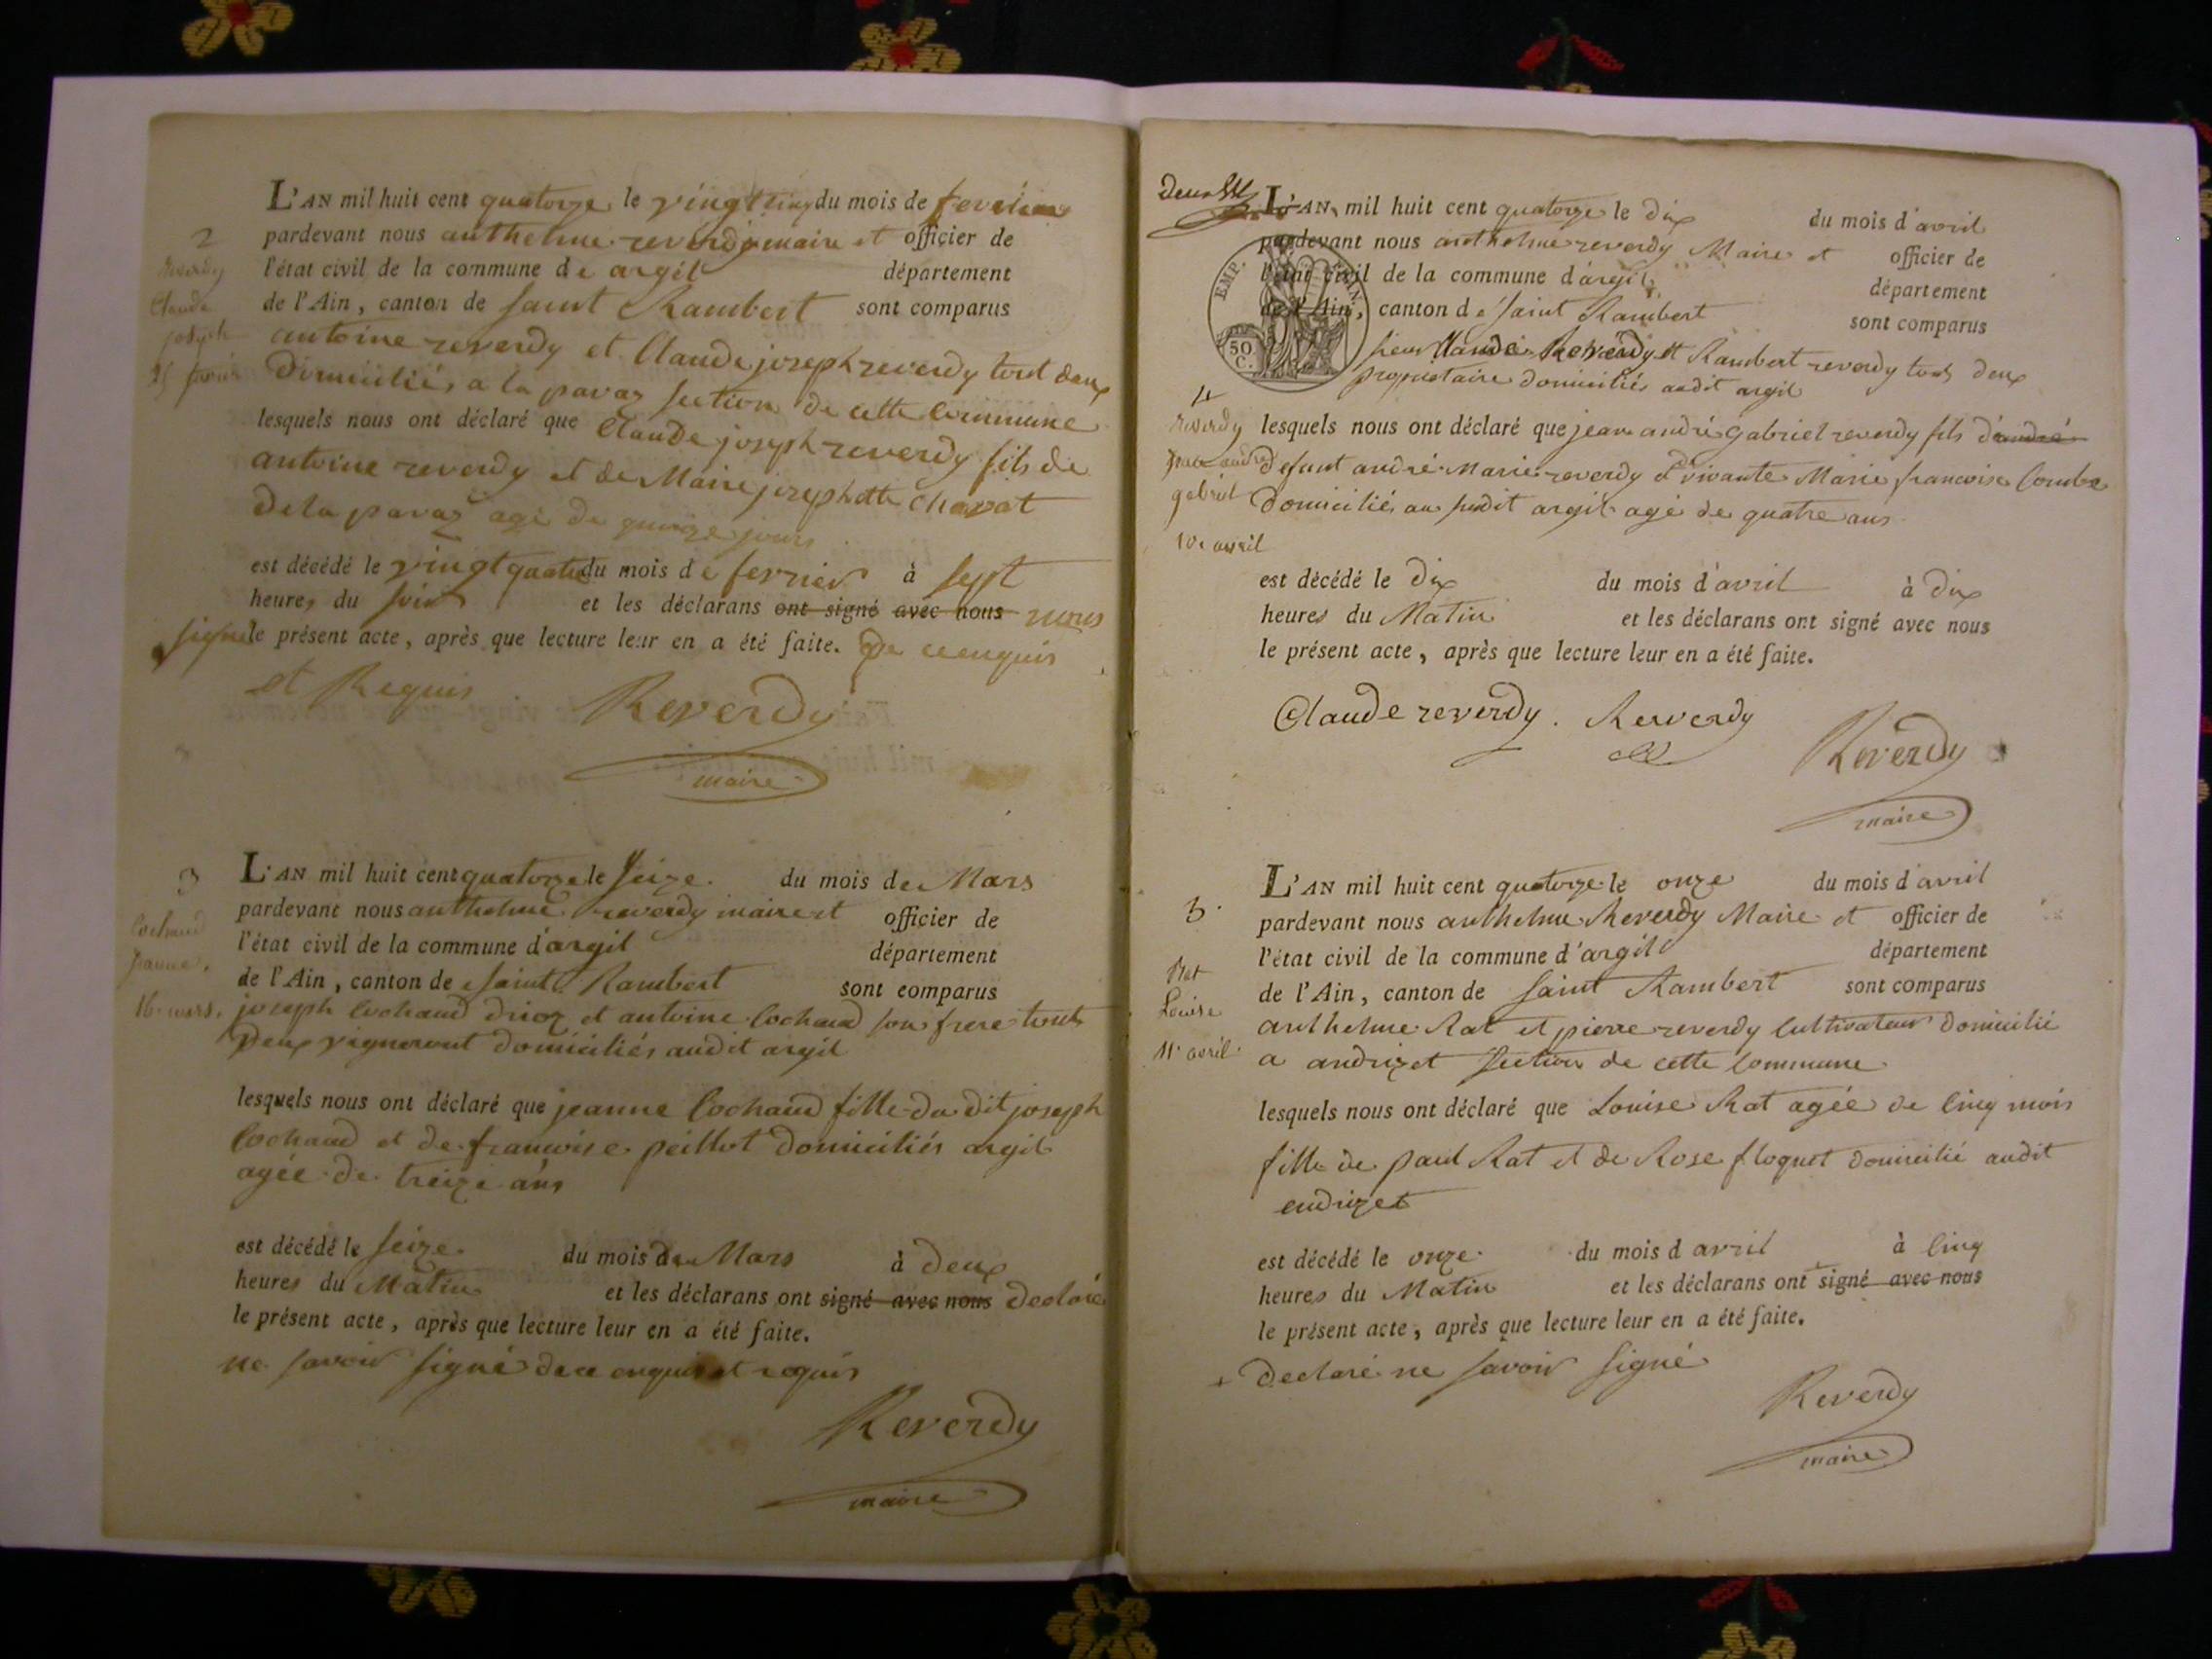 2
reverdy
Claude
joseph
25 fevrier
L'AN mil huit cent quatorze le vingt cinq du mois de fevrier
pardevant nous anthelme reverdy maire et officier de
l'état civil de la commune de argil département
de l'Ain, canton de saint Rambert sont comparus
antoine reverdy et Claude joseph reverdy tout deux
Domiciliés a la pavaz section de cette commune
lesquels nous ont déclaré que Claude joseph reverdy fils de
antoine reverdy et de Marie josephatte chavat
De la pavaz agé de quinze jours
est décédé le vingt quatre du mois de fevrier à sept
heures du soir et les déclarans ont signé avec nous nous
signé le présent acte, après que lecture leur en a été faite. De ce enquis
et Requis
Reverdy
maire
3
Cochaud
jeanne
16 mars
L'AN mil huit cent quatorze le seize du mois de Mars
pardevant nous anthelme reverdy maire et officier de
l'état civil de la commune d'argil département
de l'Ain, canton de saint Rambert sont comparus
joseph Cochaud et antoine Cochaud son frere touts
Deux vigneront domiciliés audit argil
lesquels nous ont déclaré que jeanne Cochaud fille du dit joseph
Cochaud et de francoise peillot domiciliés argil
agée de treize ans
est décédé le seize du mois de Mars à deux
heures du Matin et les déclarans ont signé avec nous declaré
le présent acte, après que lecture leur en a été faite.
ne savoir signé de ce enquis et requis
Reverdy
maire
EMP. FRAN.
50 C.
4
reverdy
jean andré
gabriel
10e avril
L'AN mil huit cent quatorze le dix du mois d'avril
pardevant nous anthelme reverdy Maire et officier de
l'état civil de la commune d'argil département
de l'Ain, canton de saint Rambert sont comparus
sieur Claude Reverdy et Rambert reverdy touts deux
propriétaire domiciliés audit argil
lesquels nous ont déclaré que jean andré gabriel reverdy fils d'andré
Defunt andré Marie reverdy & vivante Marie francoise Combe
Domiciliés au susdit argil agé de quatre ans
est décédé le dix du mois d'avril à dix
heures du Matin et les déclarans ont signé avec nous
le présent acte, après que lecture leur en a été faite.
Claude reverdy. Rerverdy
Reverdy
maire
5
Rat
Louise
11 avril
L'AN mil huit cent quatorze le onze du mois d'avril
pardevant nous anthelme Reverdy Maire et officier de
l'état civil de la commune d'argil département
de l'Ain, canton de saint Rambert sont comparus
anthelme Rat et pierre reverdy Cultivateur Domicilié
a andrizet section de cette commune
lesquels nous ont déclaré que Louise Rat agée de cinq mois
fille de paul Rat et de Rose floquet domicilié audit
endrizet
est décédé le onze du mois d avril à cinq
heures du Matin et les déclarans ont signé avec nous
le présent acte, après que lecture leur en a été faite.
+ declaré ne savoir signé
Reverdy
maire